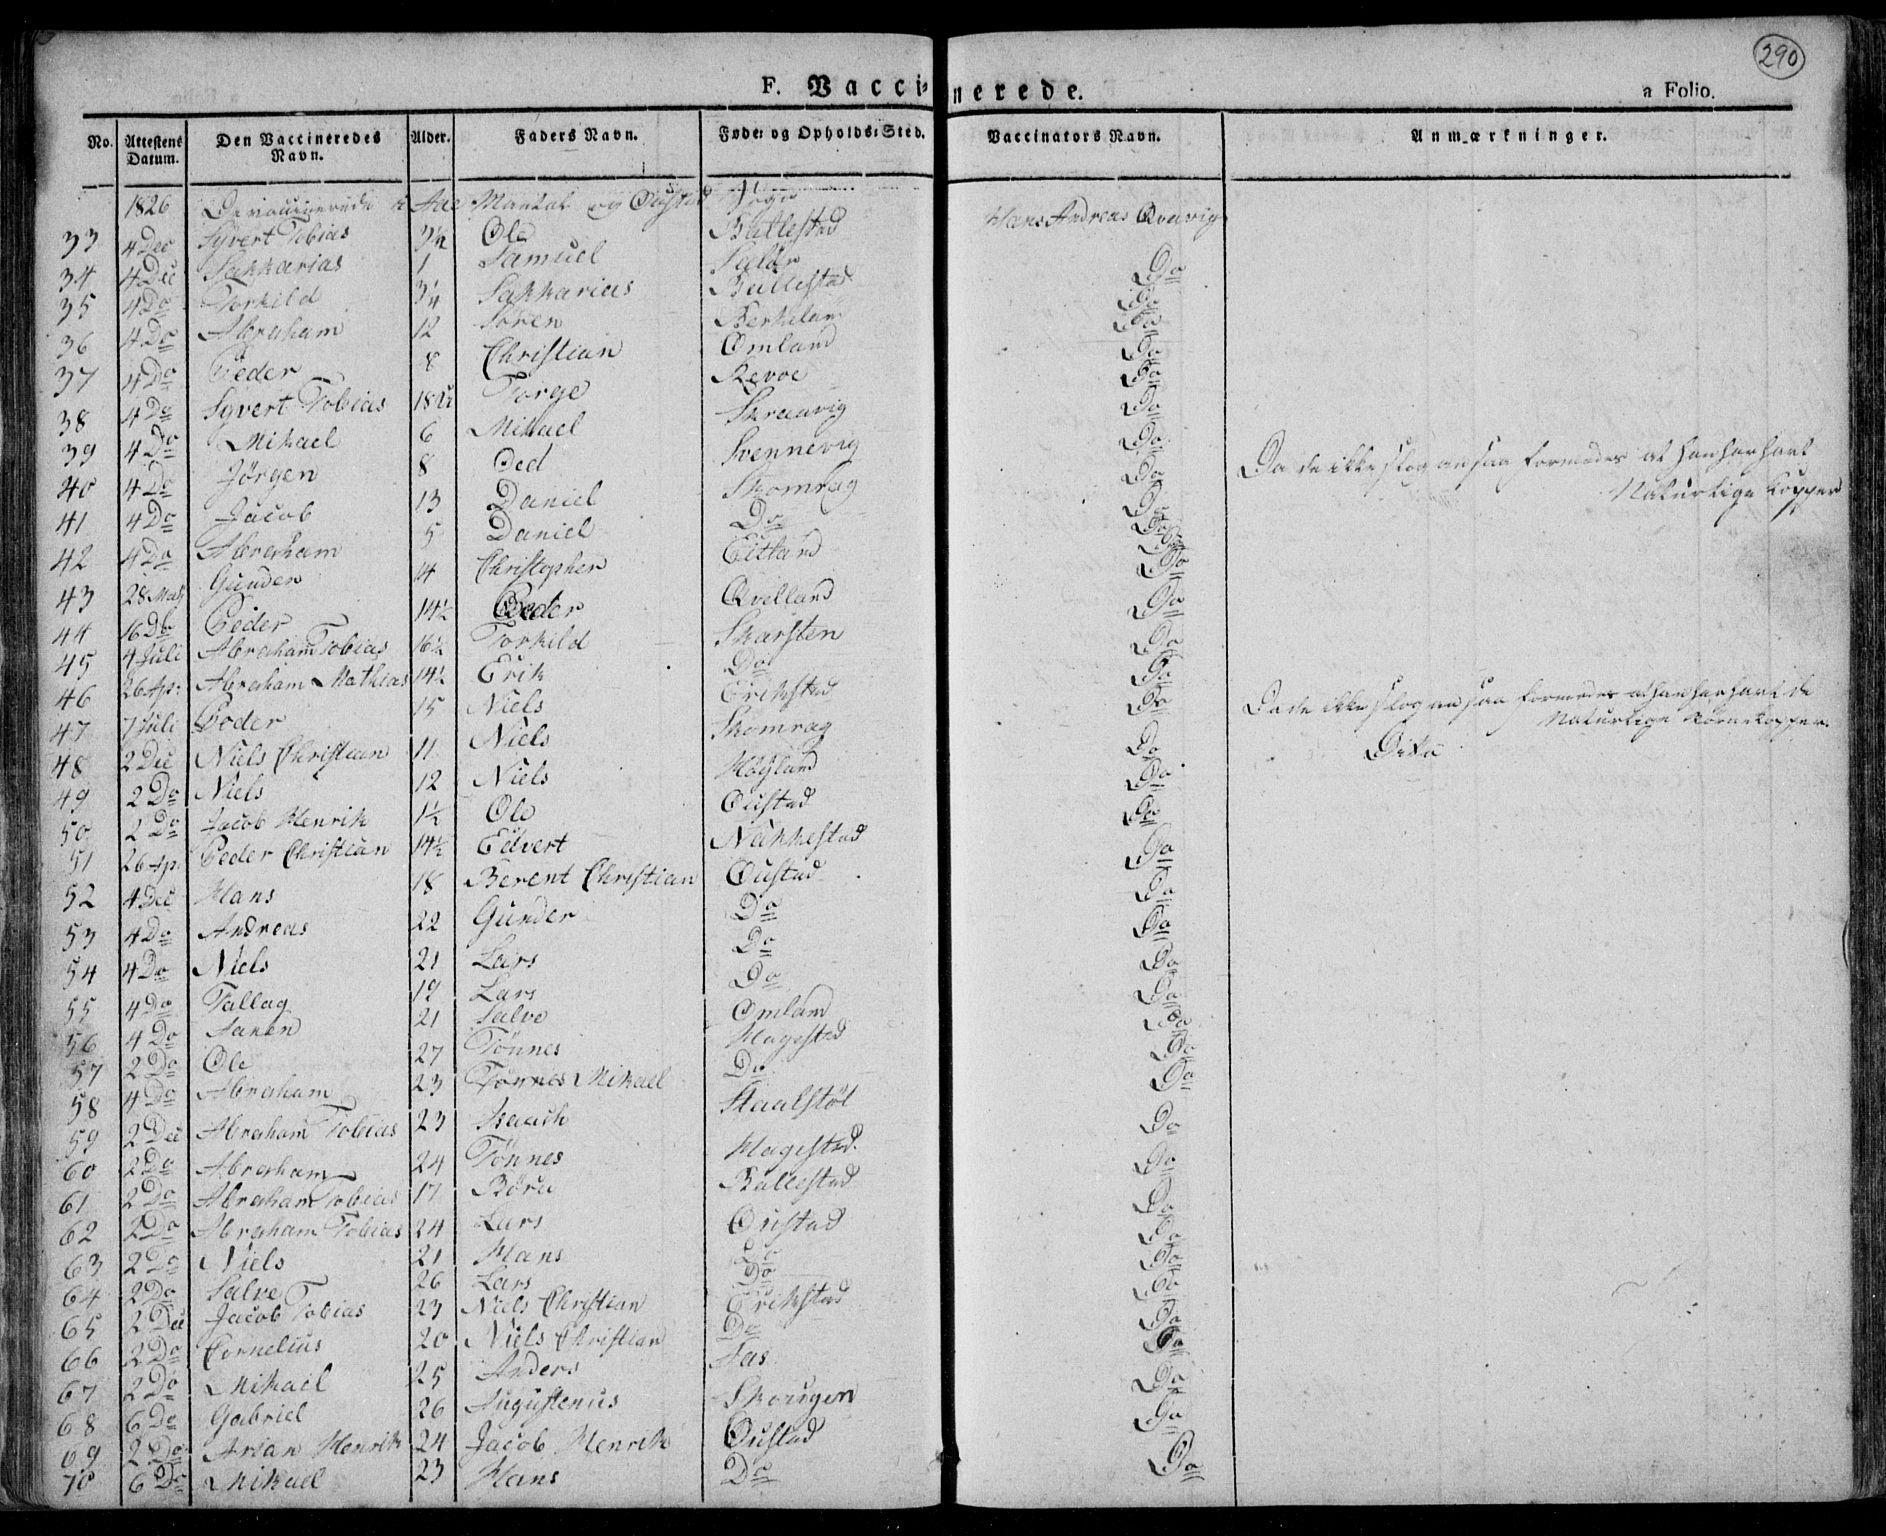 290
F. Vaccinerede.
a Folio.
No. Attestens Datum. Den Vaccineredes Navn. Alder. Faders Navn. Føde- og Opholds-Sted. Vaccinators Navn. Anmærkninger.
1826 De vaccinerede Mandal og Sogn
33 4 Dec Syvert Tobias 3½ Ole Ballestad Hans Andreas Qvavig
34 4 Dec Sakkarias 1 Samuel Do
35 4 Do Torkild 3¼ Sakkarias Ballestad Do
36 4 Do Abraham 12 Søren Do
37 4 Do Peder 8 Christian Omland Do
38 4 Do Syvert Tobias 18 Torge Revøe Do
39 4 Do Mikael 6 Mikael Skraavig Do
40 4 Do Jørgen 8 Oed Svennevig Do Da de ikke slog an saa formodes at han har havt Naturlige Kopper
41 4 Do Jacob 13 Daniel Skomrag Do
42 4 Do Abraham 5 Daniel Do Do
43 28 Gunder 14 Christopher Eitland Do
44 16 Do Peder 14½ Peder Qvelland Do
45 4 Juli Abraham Tobias 16½ Torkild Skarsten Do
46 26 Ap: Abraham Mathias 14½ Erik Do Do
47 7 Juli Peder 15 Niels Erikstad Do Da de ikke slog an saa formodes at han har havt de Naturlige Børnekopper
48 2 Dec Niels Christian 11 Niels Skomrag Do Dito
49 2 Do Niels 12 Niels Høyland Do
50 2 Do Jacob Henrik 1½ Ole Oustad Do
51 26 Ap. Peder Christian 14½ Edvert Nakkestad Do
52 4 Dec Hans 18 Berent Christian Oustad Do
53 4 Do Andreas 22 Gunder Do Do
54 4 Do Niels 21 Lars Do Do
55 4 Do Tallag 19 Lars Do Do
56 4 Do Janen 21 Salve Omland Do
57 2 Do Ole 27 Tønnes Hagestad Do
58 4 Do Abraham 23 Tønnes Mikael Do Do
59 2 Dec Abraham Tobias 23 Isaach Staalstøl Do
60 2 Do Abraham 24 Tønnes Hagestad Do
61 2 Do Abraham Tobias 17 Børu Ballestad Do
62 2 Do Abraham Tobias 24 Lars Oustad Do
63 2 Do Niels 21 Hans Do Do
64 2 Do Salve 26 Lars Do Do
65 2 Dec Jacob Tobias 23 Niels Christian Erikstad Do
66 2 Do Cornelius 20 Niels Christian Do Do
67 2 Do Mikael 25 Anders Aas Do
68 6 Do Gabriel 26 Augustenus Skougen Do
69 2 Do Arian Henrik 24 Jacob Henrik Oustad Do
70 6 Do Mikael 23 Hans Do Do